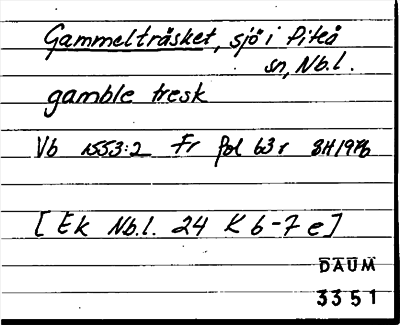 Gammelträsket, sjö i Piteå
sn, Nb.l.
gamble tresk
Vb 1553:2 Fr fol 63 r BH 1976
[Ek Nb.l. 24 K 6-7 e]
DAUM
3351